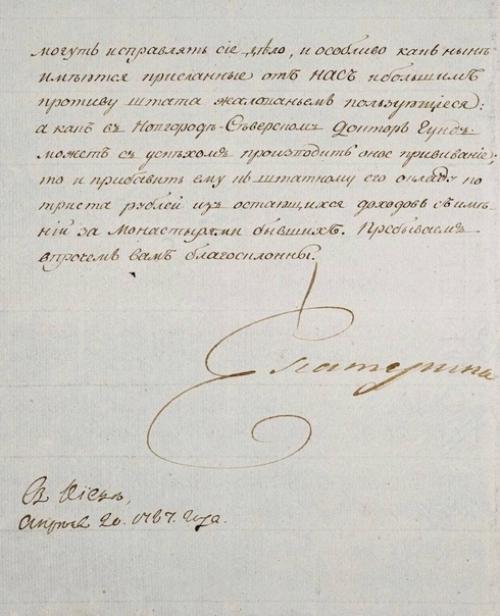 могутъ исправлять сіе дѣло, и особливо какъ нынѣ
имѣются присланные отъ НАСЪ и большимъ
противу штата жалованьемъ пользующіеся:
а какъ въ Новгородѣ-Сѣверскомъ Докторъ Гунъ
можетъ съ успѣхомъ производить оное прививаніе;
то и прибавить ему къ штатному его окладу по
триста рублей изъ остающихся доходовъ съ имѣ-
ній за Монастырями бывшихъ. Пребываемъ
впрочемъ вамъ благосклонны.
Екатерина
Въ Кіевѣ,
Апрѣля 20. 1787. года.